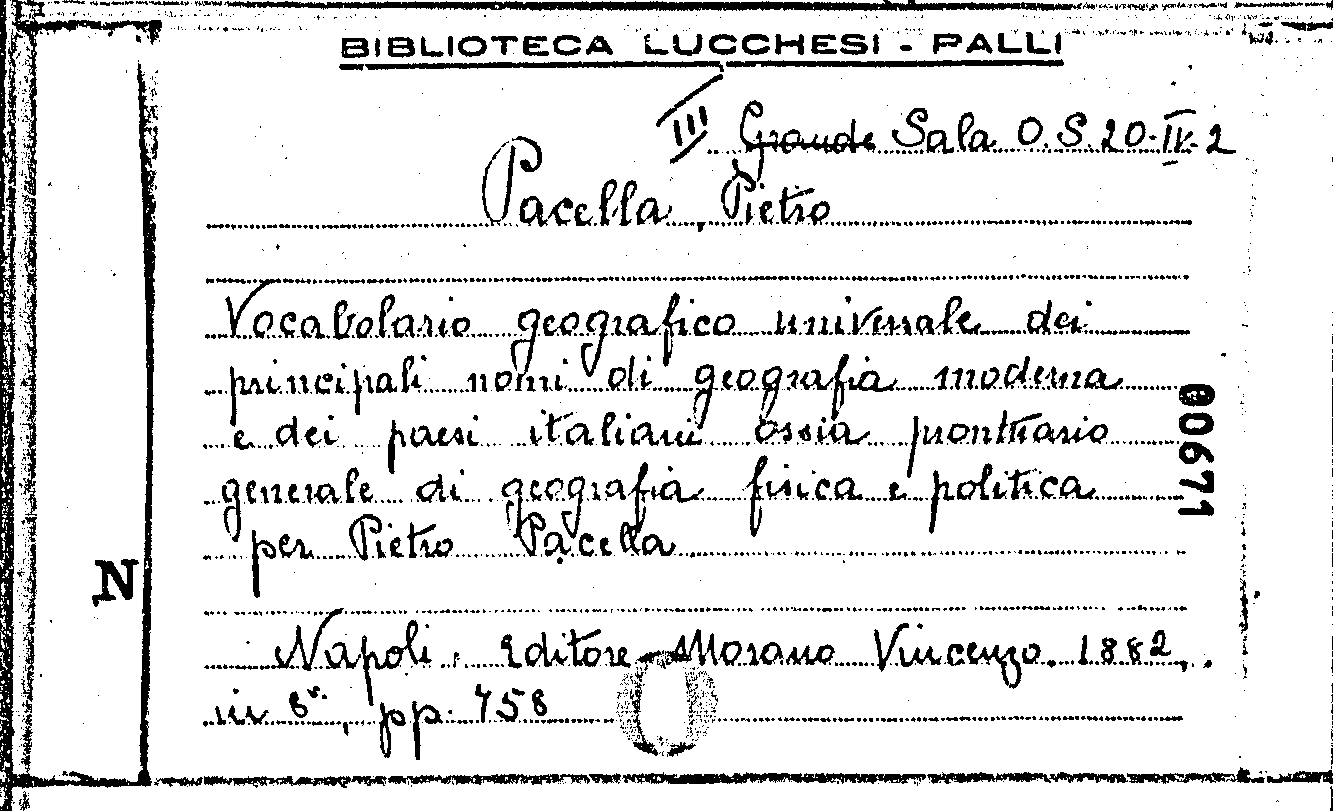 BIBLIOTECA LUCCHESI - PALLI
III Grande Sala O.S. 20-IV-2
Pacella, Pietro
Vocabolario geografico universale dei
principali nomi di geografia moderna
e dei paesi italiani ossia prontuario
generale di geografia fisica e politica
per Pietro Pacella
Napoli. Editore Morano Vincenzo. 1882.
in 8°, pp. 758
00671
N